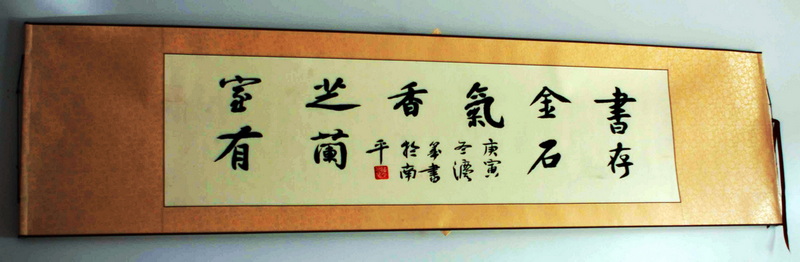 書存
金石
氣
室有
芝蘭
香
庚寅
書
於南
平